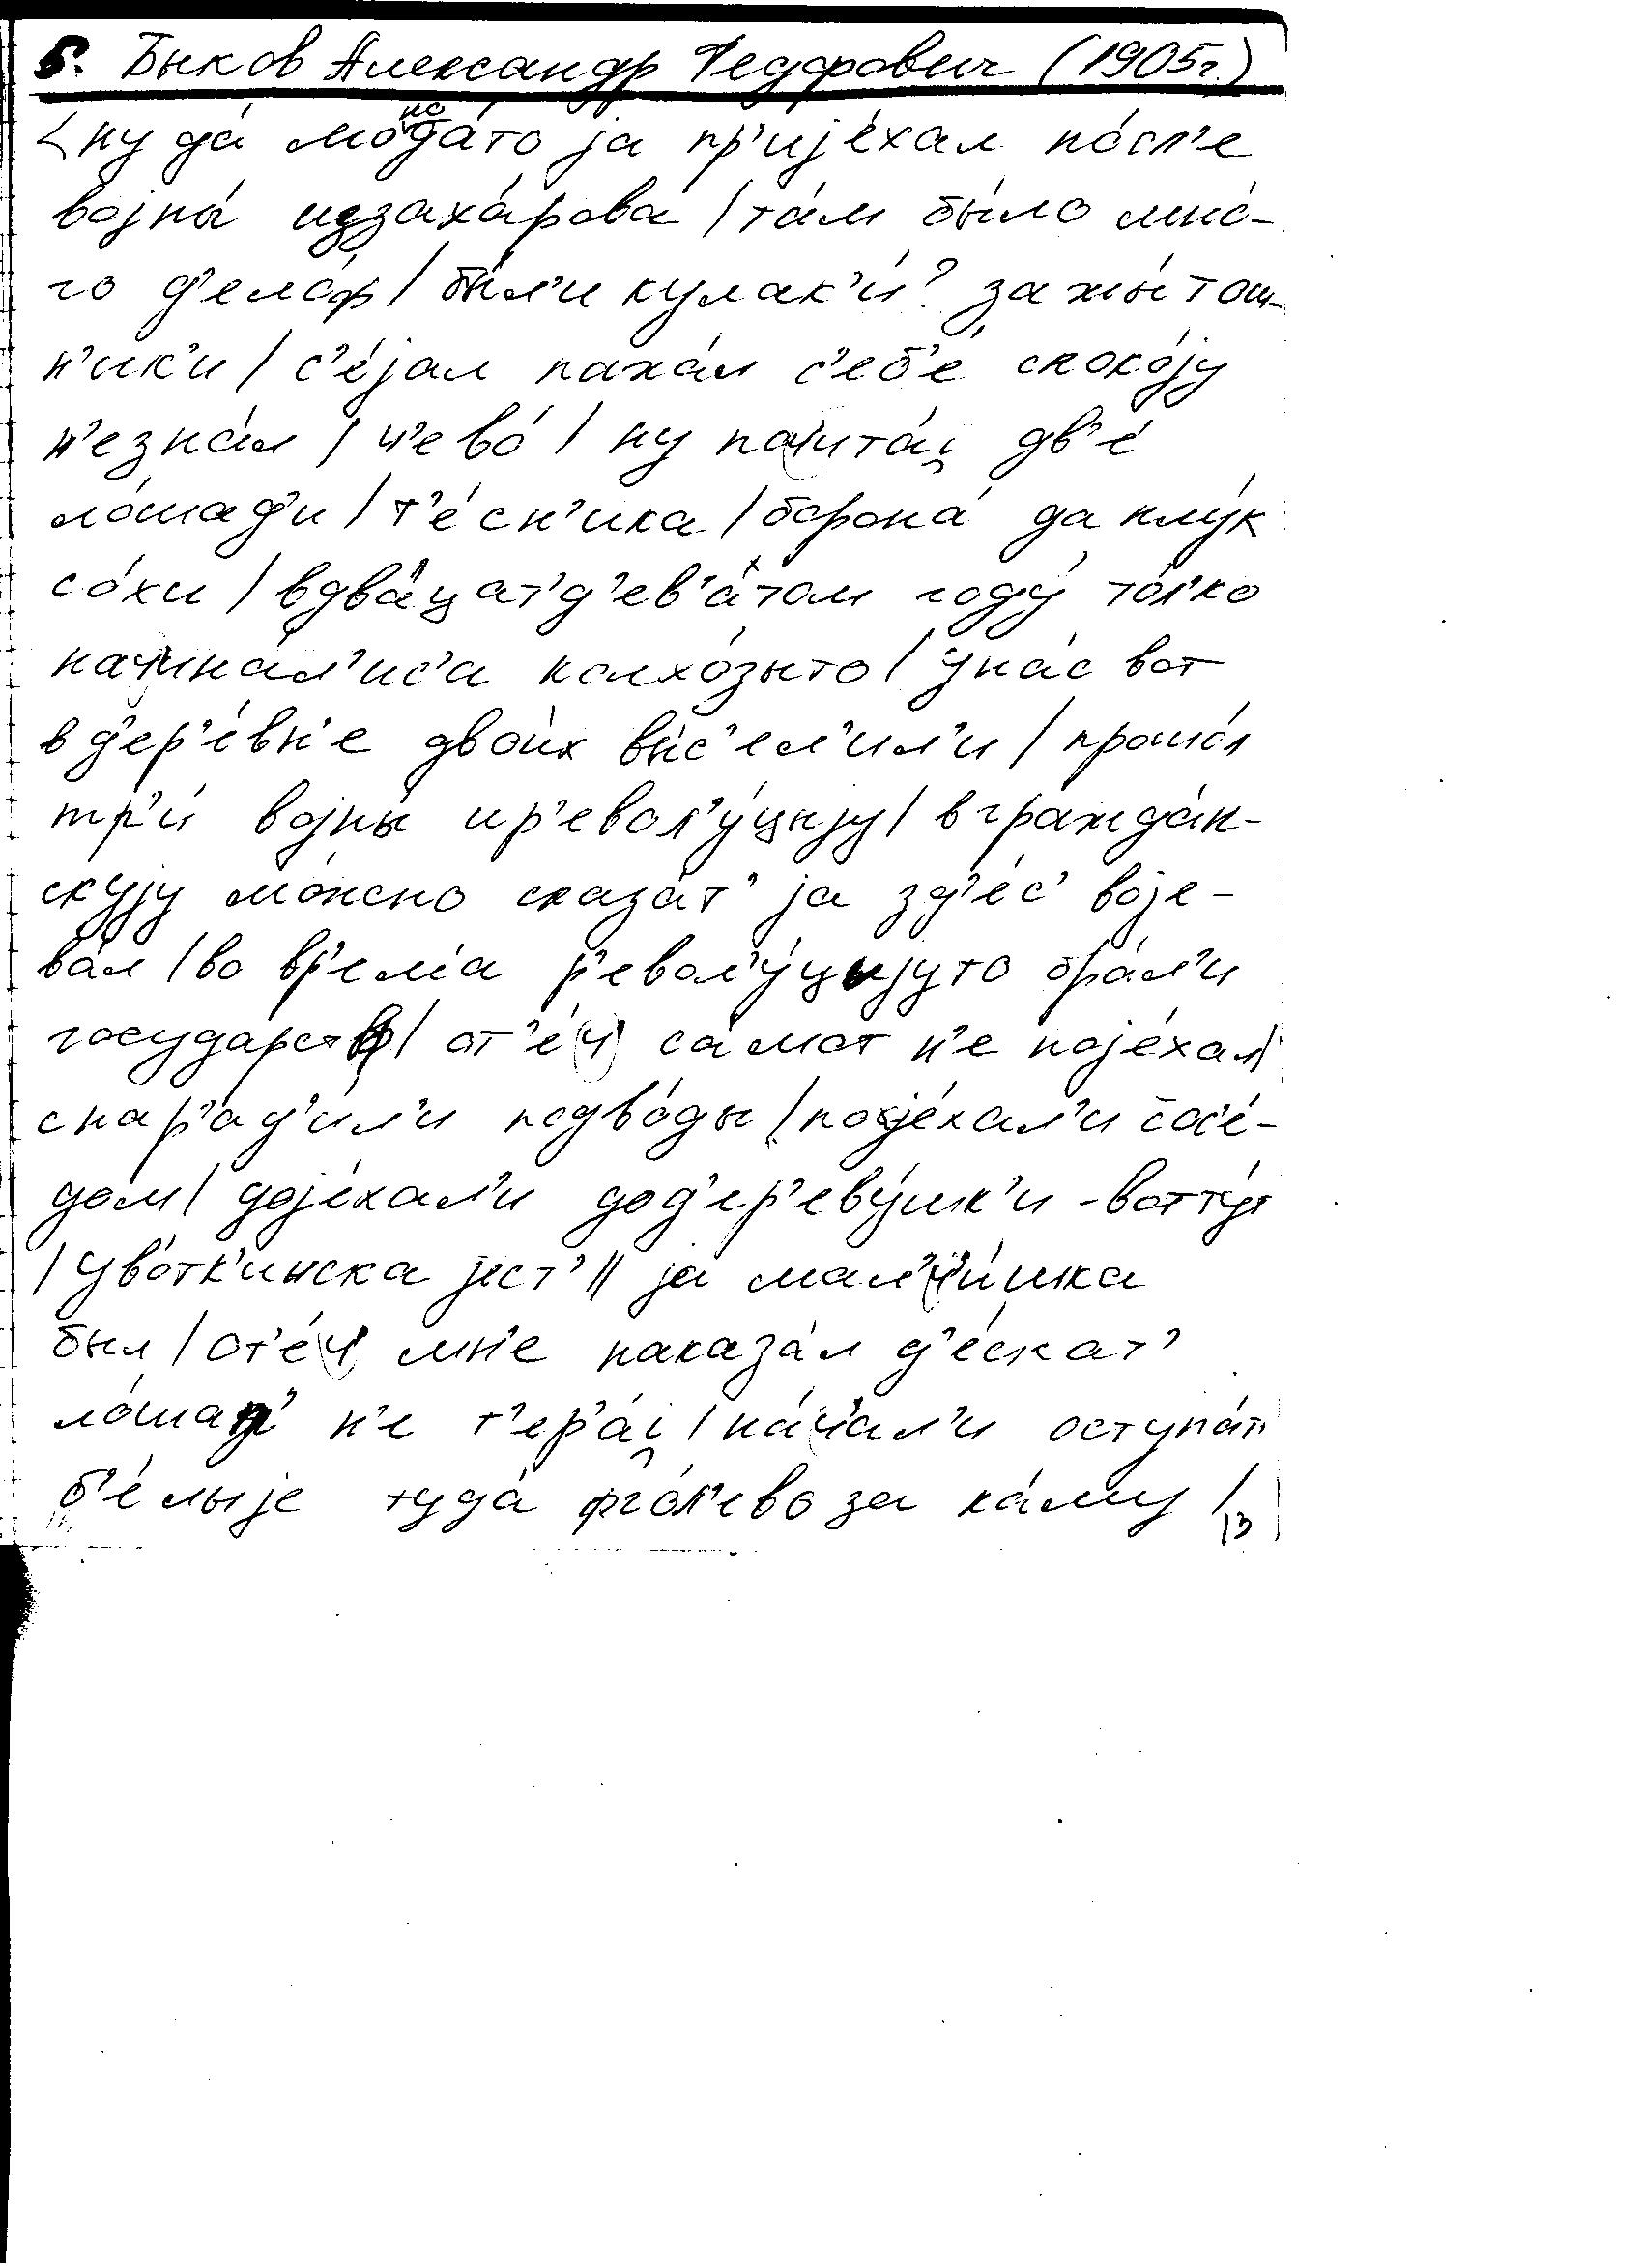 5. Быков Александр Федорович (1905г.)
ну да́ мода́то jа пр'иjе́хал по́сл'е
воjны́ иззаха́рова / та́м бы́ло мно́-
го д'ело́ф / бы́л'и кулак'и́? зажы́тош-
н'ик'и / с'е́jал паха́л с'еб'е́ споко́jу
н'езна́л / ч'ево́ / ну пачита́j дв'е́
ло́шад'и / т'е́сн'ика / борона́ да плу́к
со́хи / вдва́цат'д'ев'а́том году́ то́л'ко
начина́л'ис'а колхо́зыто / уна́с вот
вд'ер'е́вн'е двои́х вы́с'ел'ил'и / прошо́л
тр'и́ воjны́ ир'евол'у́цыjу / вгражда́н-
скуjу мо́жно сказа́т' jа зд'е́с' воjе-
ва́л / во вр'е́м'а р'евол'у́цыjуто бра́л'и
государство / от'е́ч са́мот н'е поjе́хал /
снар'ад'и́л'и подво́ды / поjе́хал'и сос'е́-
дом / доjе́хал'и дод'ер'еву́шк'и - вот ту́т
/ уво́тк'инска jес'т' // jа мал'ч'и́шка
был / от'е́ч мн'е наказа́л д'е́скат'
ло́шап' н'е т'ер'а́j / на́ч'ал'и оступа́т'
б'е́лыjе туда́ фго́л'ево за ка́му /
13